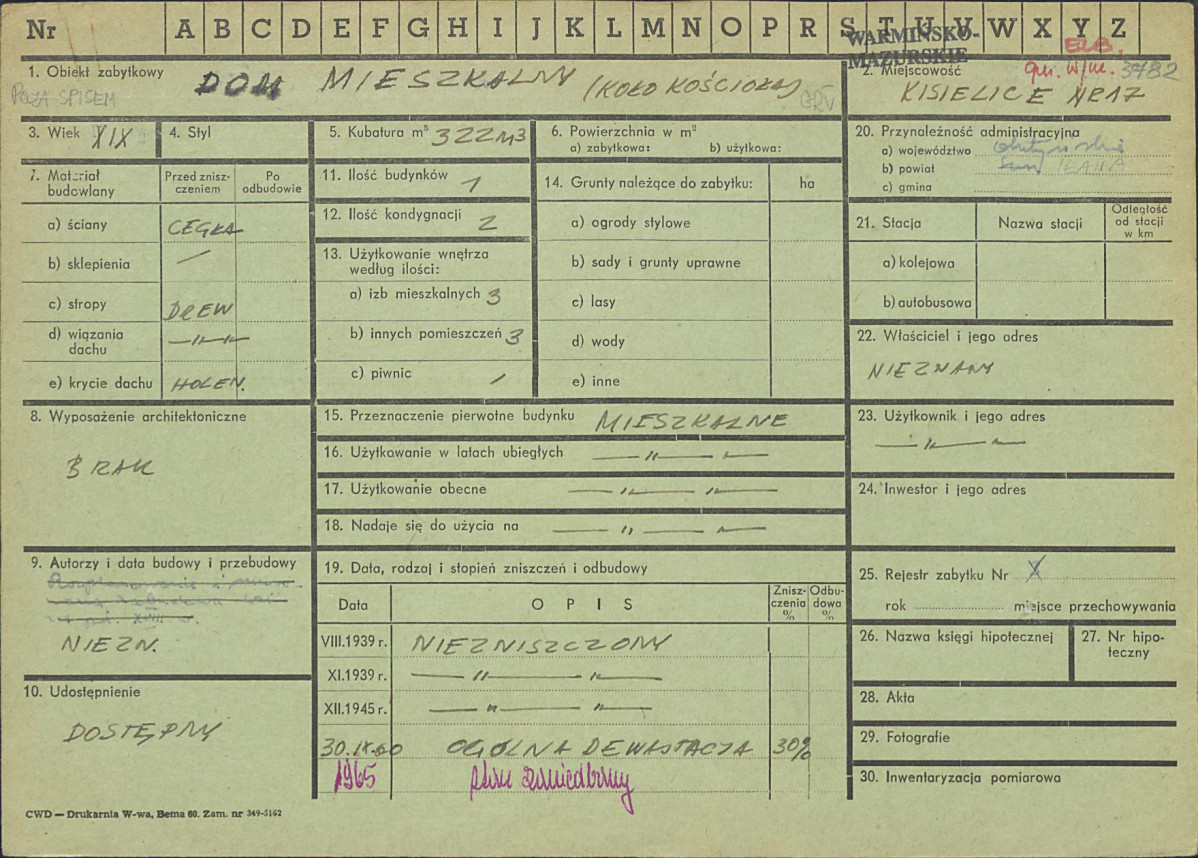 Nr A B C D E F G H I J K L M N O P R S T U V W X Y Z
WARMIŃSKO-
MAZURSKIE
ELB.
gm. w/m. 3782
1. Obiekt zabytkowy DOM MIESZKALNY (KOŁO KOŚCIOŁA)
POZA SPISEM
2. Miejscowość
KISIELICE NR 17
3. Wiek XIX
4. Styl
5. Kubatura m³ 322 m3
6. Powierzchnia w m²
a) zabytkowa: b) użytkowa:
7. Materiał budowlany
Przed znisz-
czeniem
Po
odbudowie
a) ściany CEGŁA
b) sklepienia —
c) stropy DREW
d) wiązania
dachu —„—„—
e) krycie dachu HOLEN.
8. Wyposażenie architektoniczne
BRAK
9. Autorzy i data budowy i przebudowy
NIEZN.
10. Udostępnienie
DOSTĘPNY
11. Ilość budynków 1
12. Ilość kondygnacji 2
13. Użytkowanie wnętrza
według ilości:
a) izb mieszkalnych 3
b) innych pomieszczeń 3
c) piwnic /
14. Grunty należące do zabytku: ha
a) ogrody stylowe
b) sady i grunty uprawne
c) lasy
d) wody
e) inne
15. Przeznaczenie pierwotne budynku MIESZKALNE
16. Użytkowanie w latach ubiegłych —„—„—
17. Użytkowanie obecne —„—„—
18. Nadaje się do użycia na —„—„—
19. Data, rodzaj i stopień zniszczeń i odbudowy
Data OPIS Znisz-
czenia
% Odbu-
dowa
%
VIII.1939 r. NIEZNISZCZONY
XI.1939 r. —„—„—
XII.1945 r. —„—„—
30.IX.60 OGÓLNA DEWASTACJA 30%
1965 stan zaniedbany
20. Przynależność administracyjna
a) województwo olsztyńskie
b) powiat IŁAWA
c) gmina
21. Stacja Nazwa stacji Odległość
od stacji
w km
a) kolejowa
b) autobusowa
22. Właściciel i jego adres
NIEZNANY
23. Użytkownik i jego adres
—„—„—
24. Inwestor i jego adres
25. Rejestr zabytku Nr X
rok miejsce przechowywania
26. Nazwa księgi hipotecznej
27. Nr hipo-
teczny
28. Akta
29. Fotografie
30. Inwentaryzacja pomiarowa
CWD — Drukarnia W-wa, Bema 60. Zam. nr 349-5162